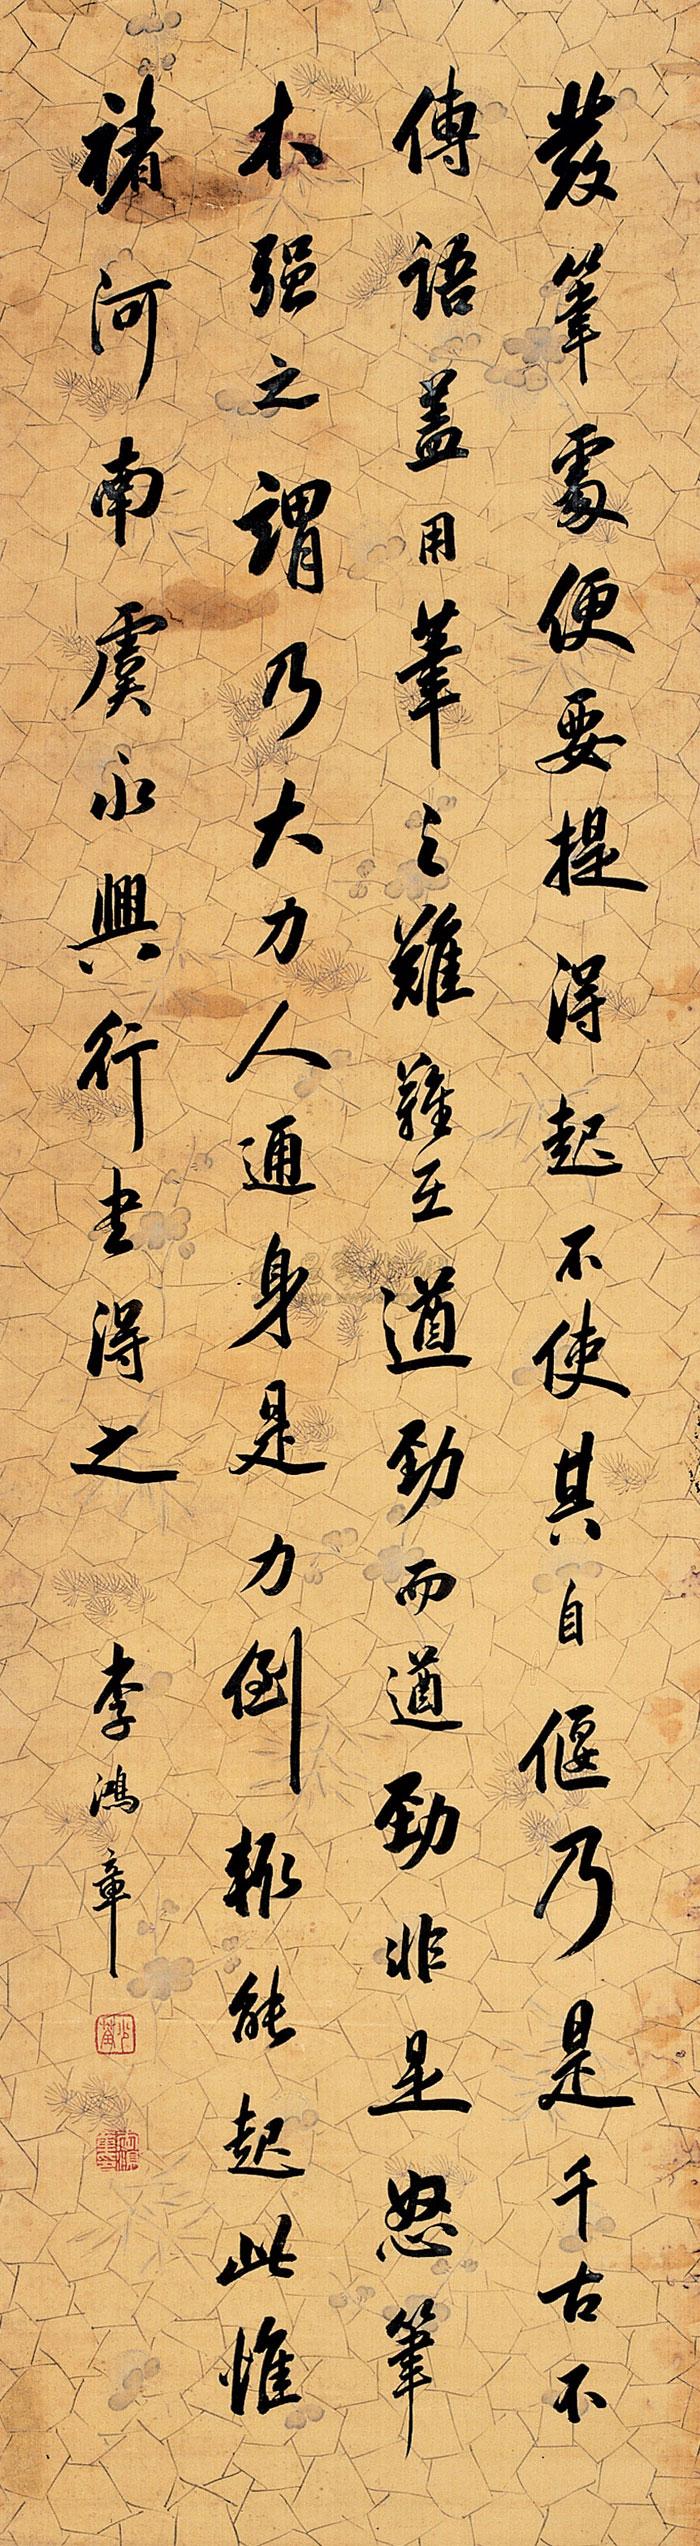 發筆處便要提得起不使其自偃乃是千古不
傳語蓋用筆之難難在遒勁而遒勁非是怒筆
木强之謂乃大力人通身是力倒輒能起此惟
褚河南虞永興行書得之
李鴻章
少荃